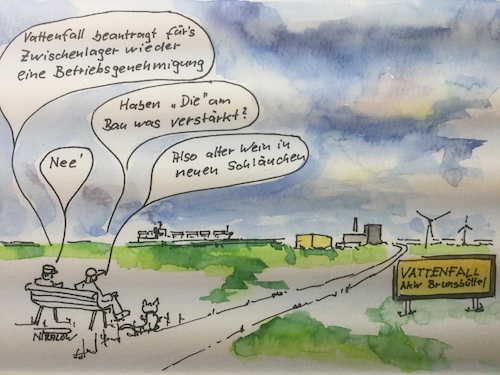 Vattenfall beantragt für's
Zwischenlager wieder
eine Betriebsgenehmigung
Haben „Die" am
Bau was verstärkt?
Nee'
Also alter Wein in
neuen Schläuchen
VATTENFALL
AKW Brunsbüttel
NIRALOW